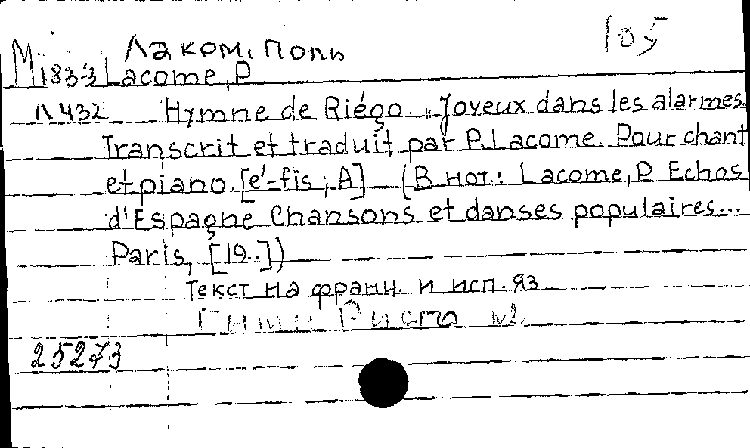 Лаком, Поль 105
М 183-3 Lacome, P
Л 432 Hymne de Riégo. „Joyeux dans les alarmes
Transcrit et traduit par P. Lacome. Pour chant
et piano. [e'-fis; A] (В нот.: Lacome, P Echos
d'Espagne Chansons et danses populaires...
Paris, [19..])
Текст на франц. и исп. яз
Гимн Риего
25273